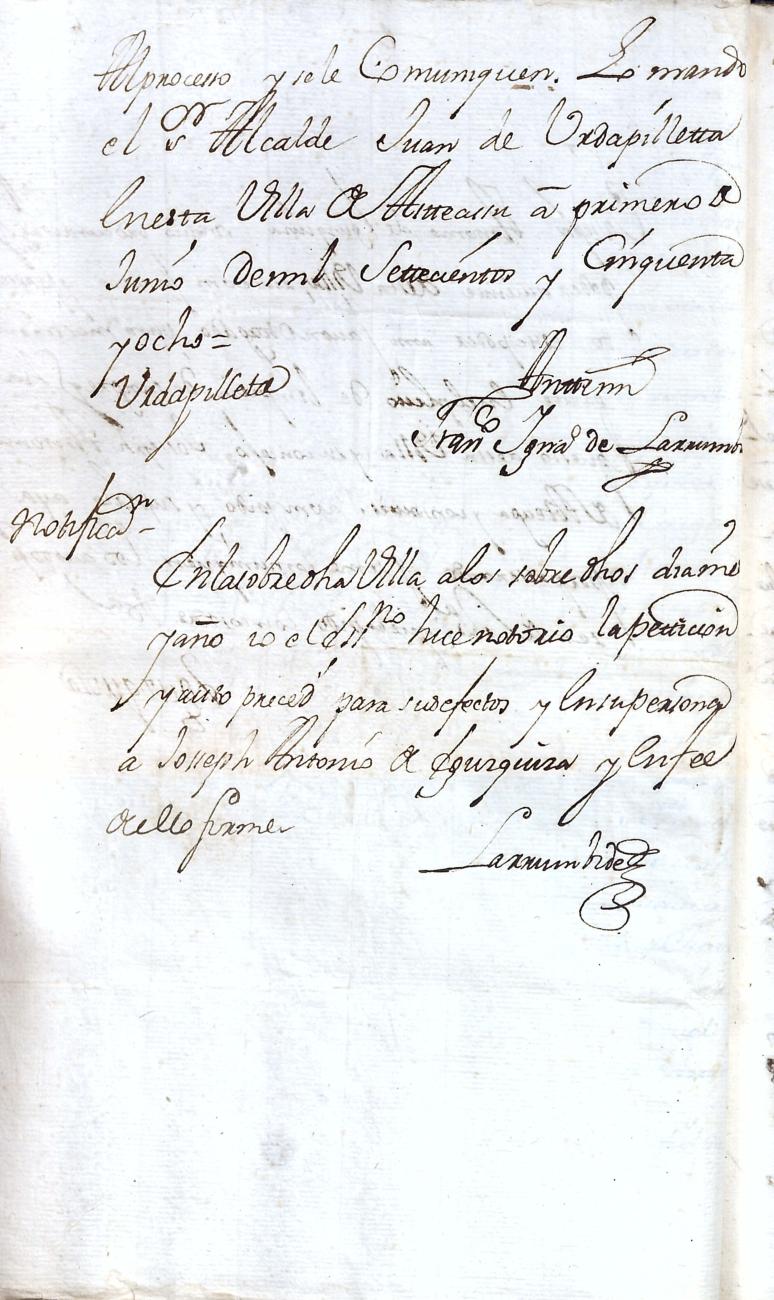 Al processo y se le Comuniquen. Lo mando
el Sr Alcalde Juan de Urdapilletta
En esta Villa de Asteassu a primero de
Junio de mil Settecientos y Cinquenta
y ocho =
Urdapilleta
Ante mi
Franco Ignao de Larrumbide
Notificon
En la sobre dha Villa a los sobre dhos dia mes
y año io el Essno hice notorio la pettición
y auto preced para su defectos y En su persona
a Josseph Antonio de Egurquiza y En fee
de ello firme
Larrumbide